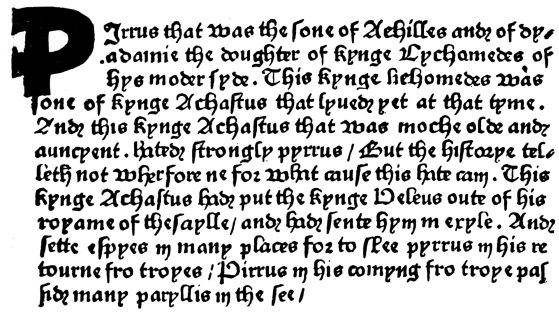 PIrrus that was the sone of Achilles and of dy/
.adamie the doughter of kynge Lychomedes of
hys moder syde. This kynge lichomedes was
sone of kynge Achastus that lyued yet at that tyme.
And this kynge Achastus that was moche olde and
auncyent. hated strongly pyrrus / But the historye tel/
leth not wherfore ne for what cause this hate cam. This
kynge Achastus had put the kynge Peleus oute of his
royame of thesaylle/ and had sente hym in exyle. And
sette espyes in many places for to slee pyrrus in his re
tourne fro troyes / Pirrus in his comyng fro troye pas
sid many paryllis in the see /